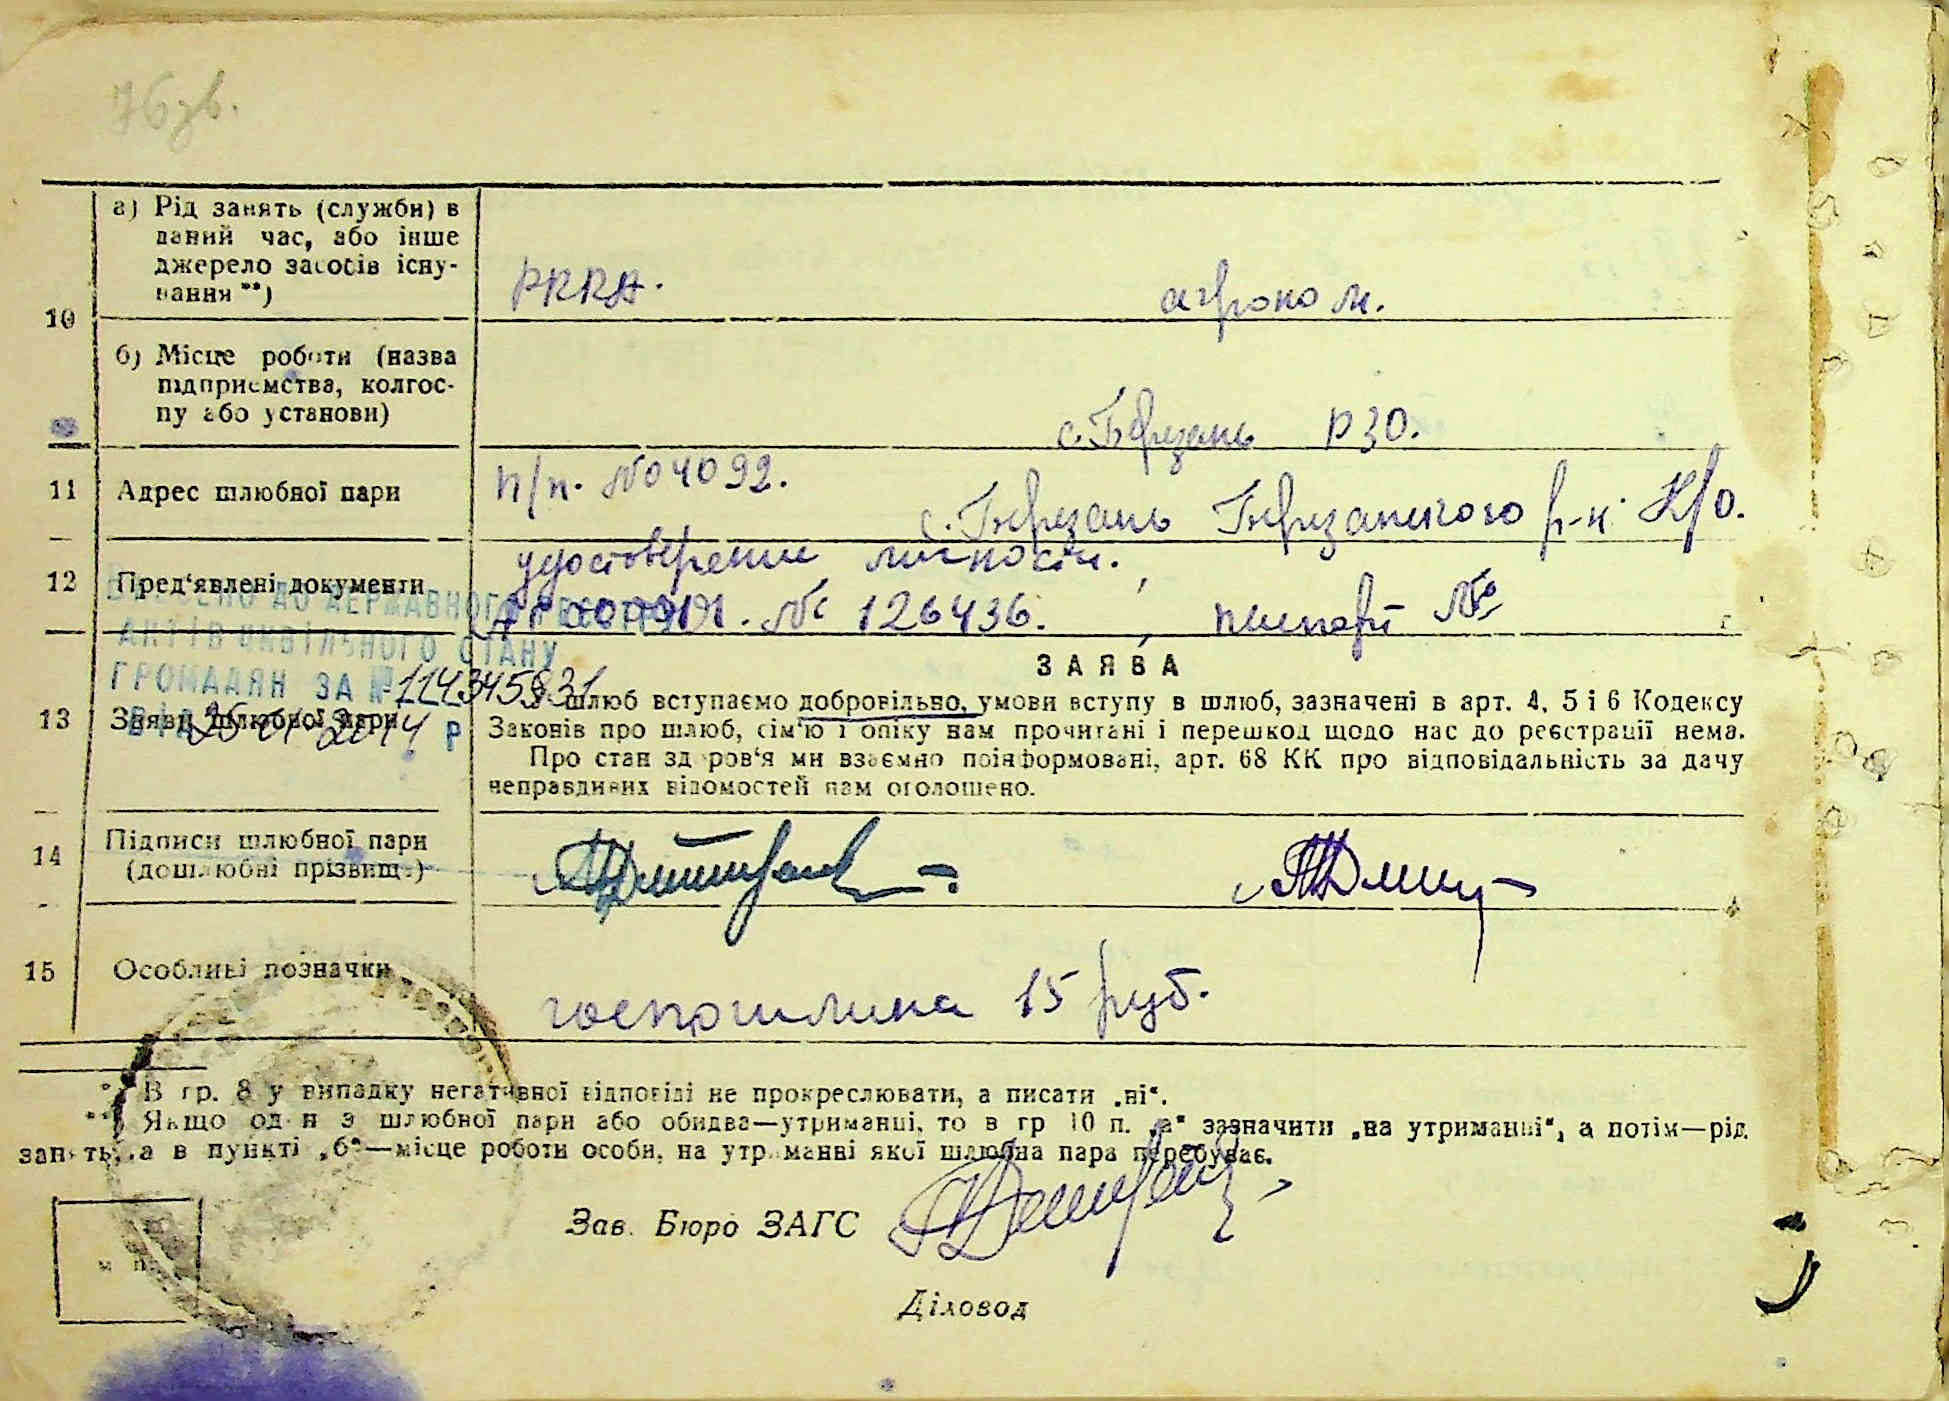 76 зв.
а) Рід занять (служби) в
даний час, або інше
джерело засобів існу-
вання **)
РККА.
агроном.
10
б) Місце роботи (назва
підприємства, колгос-
пу або установи)
с. Березань РЗО.
11 Адрес шлюбної пари
п/п. № 04092.
с. Березань Березанского р-н К/о.
12 Пред'явлені документи
удостоверение личности.
№ 126436.
паспорт №
ДО ДЕРЖАВНОГО РЕЄСТРУ
АКТІВ ЦИВІЛЬНОГО СТАНУ
ГРОМАДЯН ЗА №
ВІД Р
ЗАЯВА
13 Заяви шлюбної пари
У шлюб вступаємо добровільно, умови вступу в шлюб, зазначені в арт. 4, 5 і 6 Кодексу
Законів про шлюб, сім'ю і опіку нам прочитані і перешкод щодо нас до реєстрації нема.
Про стан здоров'я ми взаємно поінформовані, арт. 68 КК про відповідальність за дачу
неправдивих відомостей нам оголошено.
14 Підписи шлюбної пари
(дошлюбні прізвища)
15 Особливі позначки
госпошлина 15 руб.
*) В гр. 8 у випадку негативної відповіді не прокреслювати, а писати „ні“.
**) Якщо один з шлюбної пари або обидва—утриманці, то в гр 10 п. „а“ зазначити „на утриманні“, а потім—рід
занять, а в пункті „б“—місце роботи особи, на утриманні якої шлюбна пара перебуває.
Зав. Бюро ЗАГС
м п.
Діловод